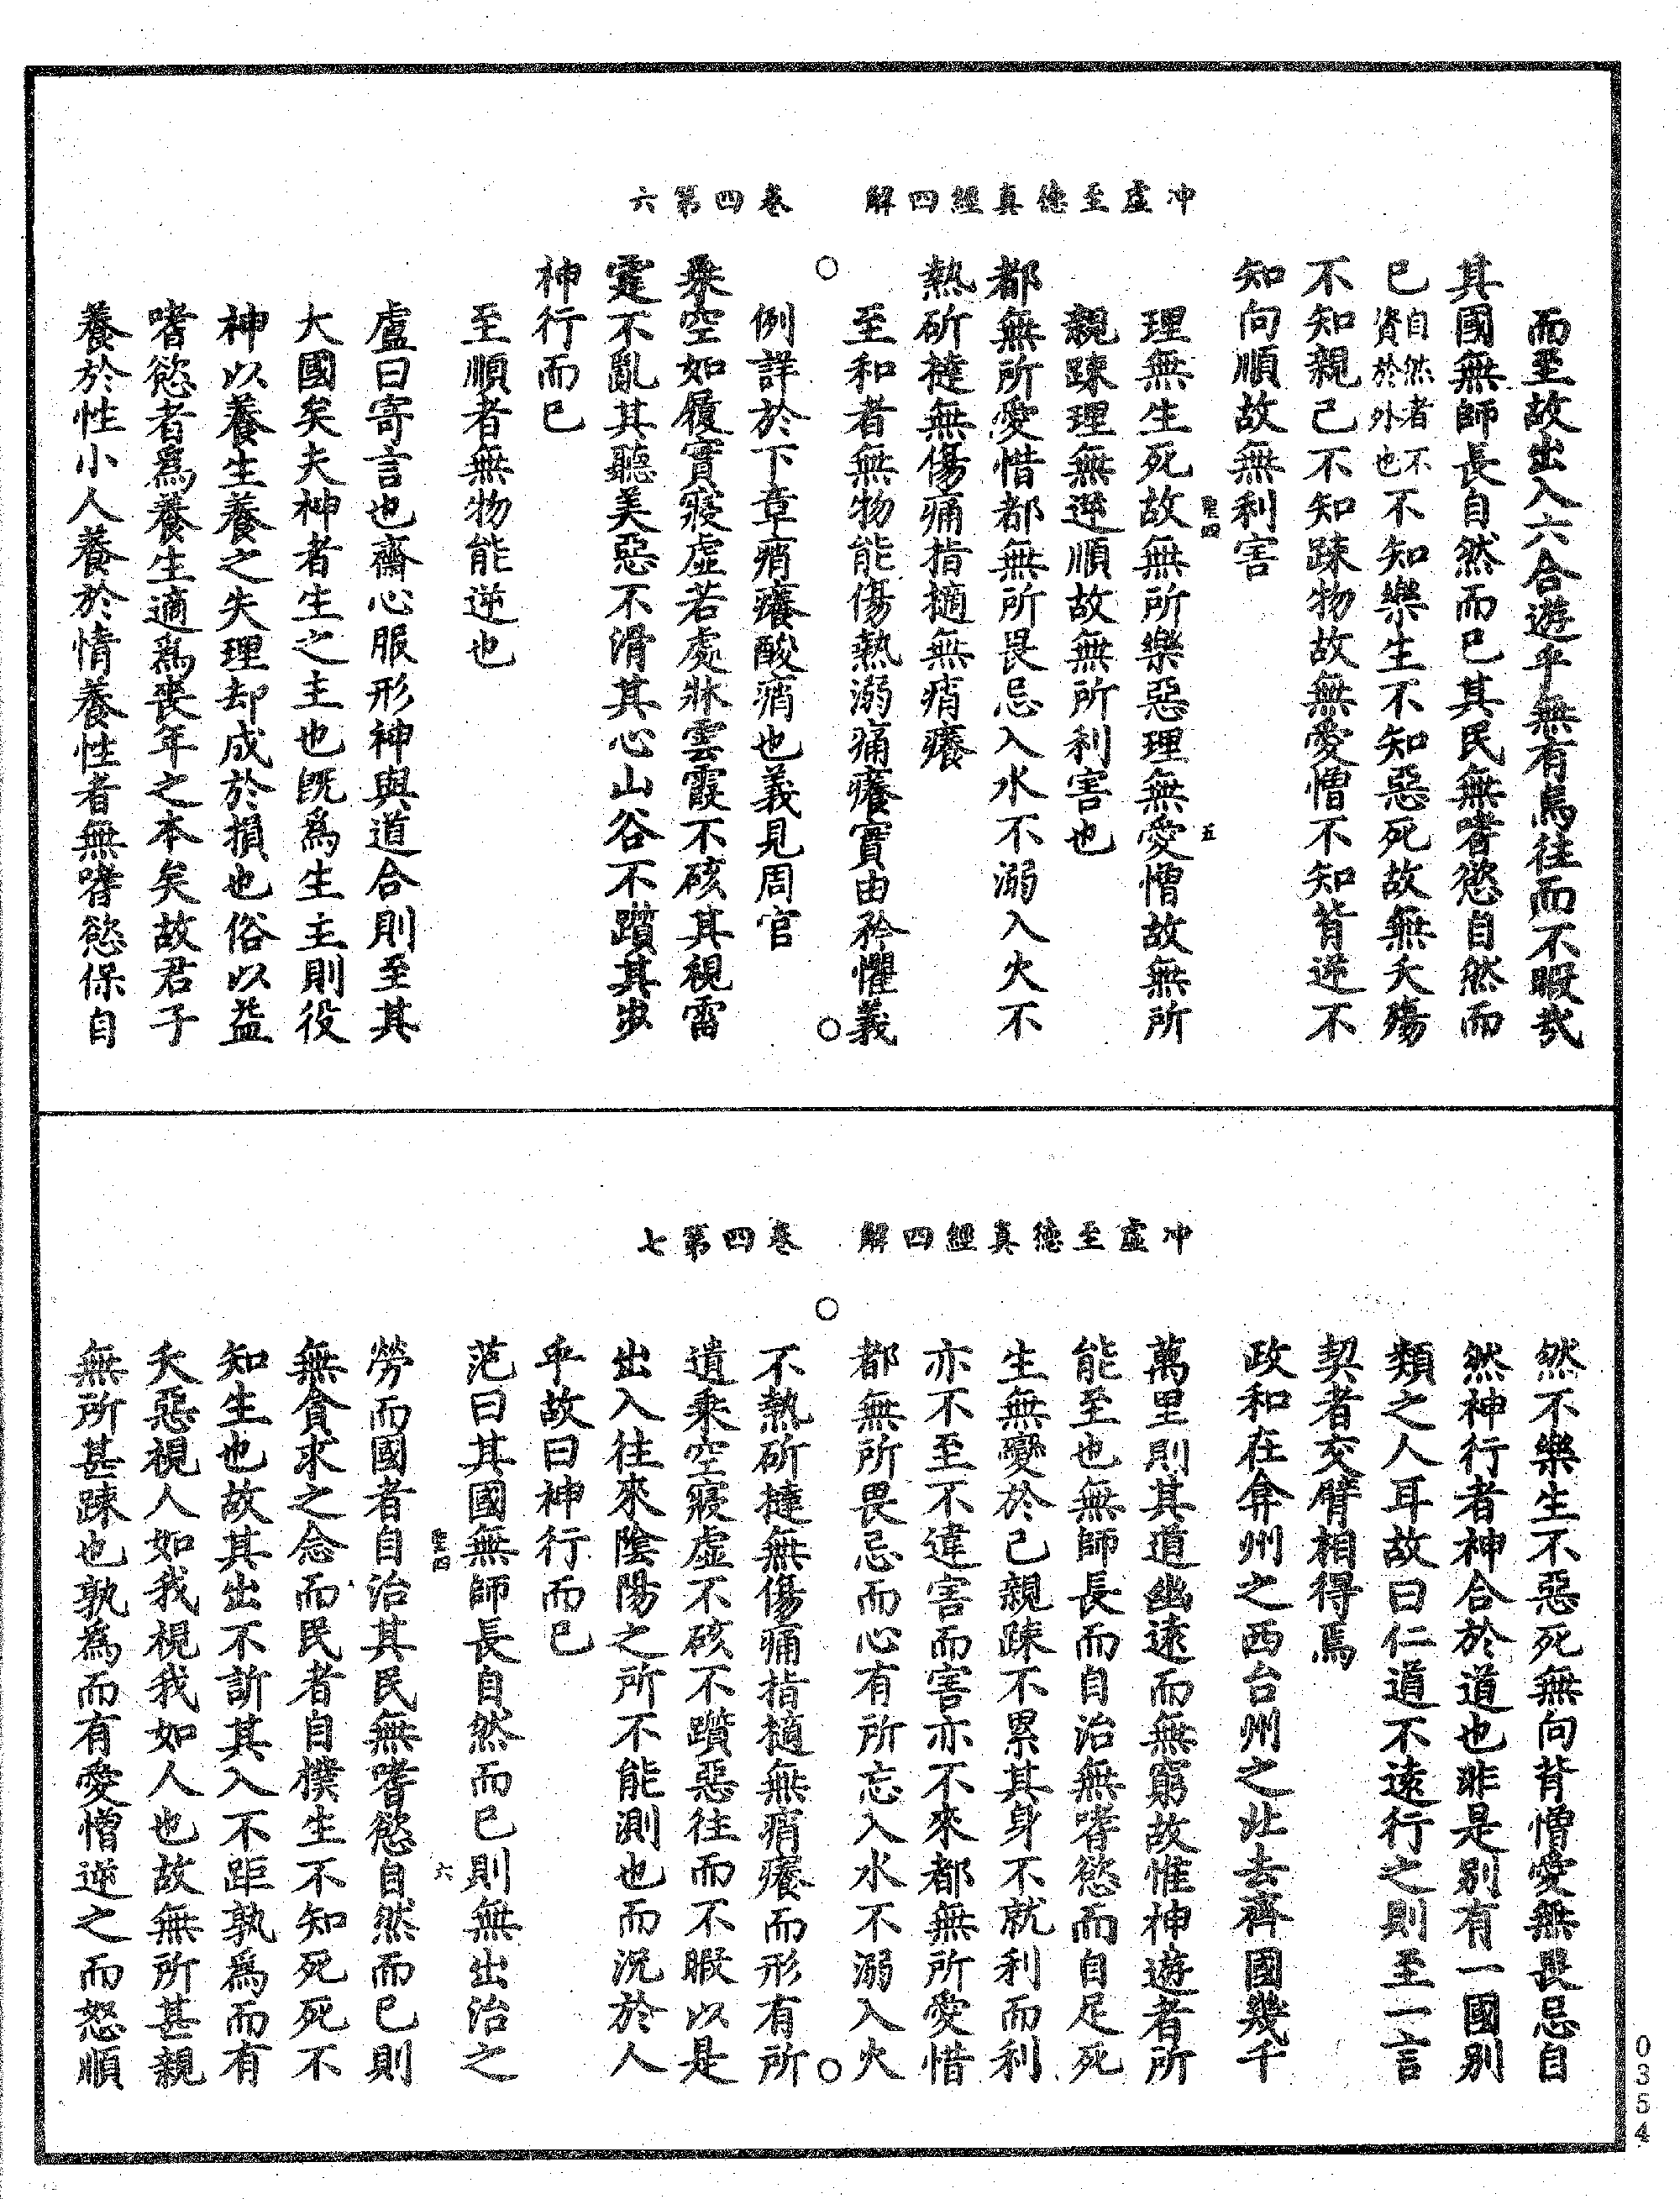 冲虛至德真經四解　卷四第六
而至故出入六合遊乎無有焉往而不暇哉
其國無師長自然而已其民無嗜慾自然而
已自然者不資於外也不知樂生不知惡死故無夭殤
不知親己不知踈物故無愛憎不知背逆不
知向順故無利害
聖四　五
理無生死故無所樂惡理無愛憎故無所
親踈理無逆順故無所利害也
都無所愛惜都無所畏忌入水不溺入火不
熱斫撻無傷痛指擿無痟癢
至和者無物能傷熱溺痛癢實由矜懼義
例詳於下章痟癢酸痟也義見周官
乘空如履實寢虛若處牀雲霧不硋其視雷
霆不亂其聽美惡不滑其心山谷不躓其步
神行而已
至順者無物能逆也
盧曰寄言也齋心服形神與道合則至其
大國矣夫神者生之主也既爲生主則役
神以養生養之失理却成於損也俗以益
嗜慾者爲養生適爲喪年之本矣故君子
養於性小人養於情養性者無嗜慾保自
冲虛至德真經四解　卷四第七
然不樂生不惡死無向背憎愛無畏忌自
然神行者神合於道也非是別有一國別
類之人耳故曰仁道不遠行之則至一言
契者交臂相得焉
政和在弇州之西台州之北去齊國幾千
萬里則其道幽遠而無窮故惟神遊者所
能至也無師長而自治無嗜慾而自足死
生無變於己親踈不累其身不就利而利
亦不至不違害而害亦不來都無所愛惜
都無所畏忌而心有所忘入水不溺入火
不熱斫撻無傷痛指擿無痟癢而形有所
遺乘空寢虛不硋不躓惡往而不暇以是
出入往來陰陽之所不能測也而況於人
乎故曰神行而已
范曰其國無師長自然而已則無出治之
聖四　六
勞而國者自治其民無嗜慾自然而已則
無貪求之念而民者自樸生不知死死不
知生也故其出不訢其入不距孰爲而有
夭惡視人如我視我如人也故無所甚親
無所甚踈也孰爲而有愛憎逆之而怒順
0354